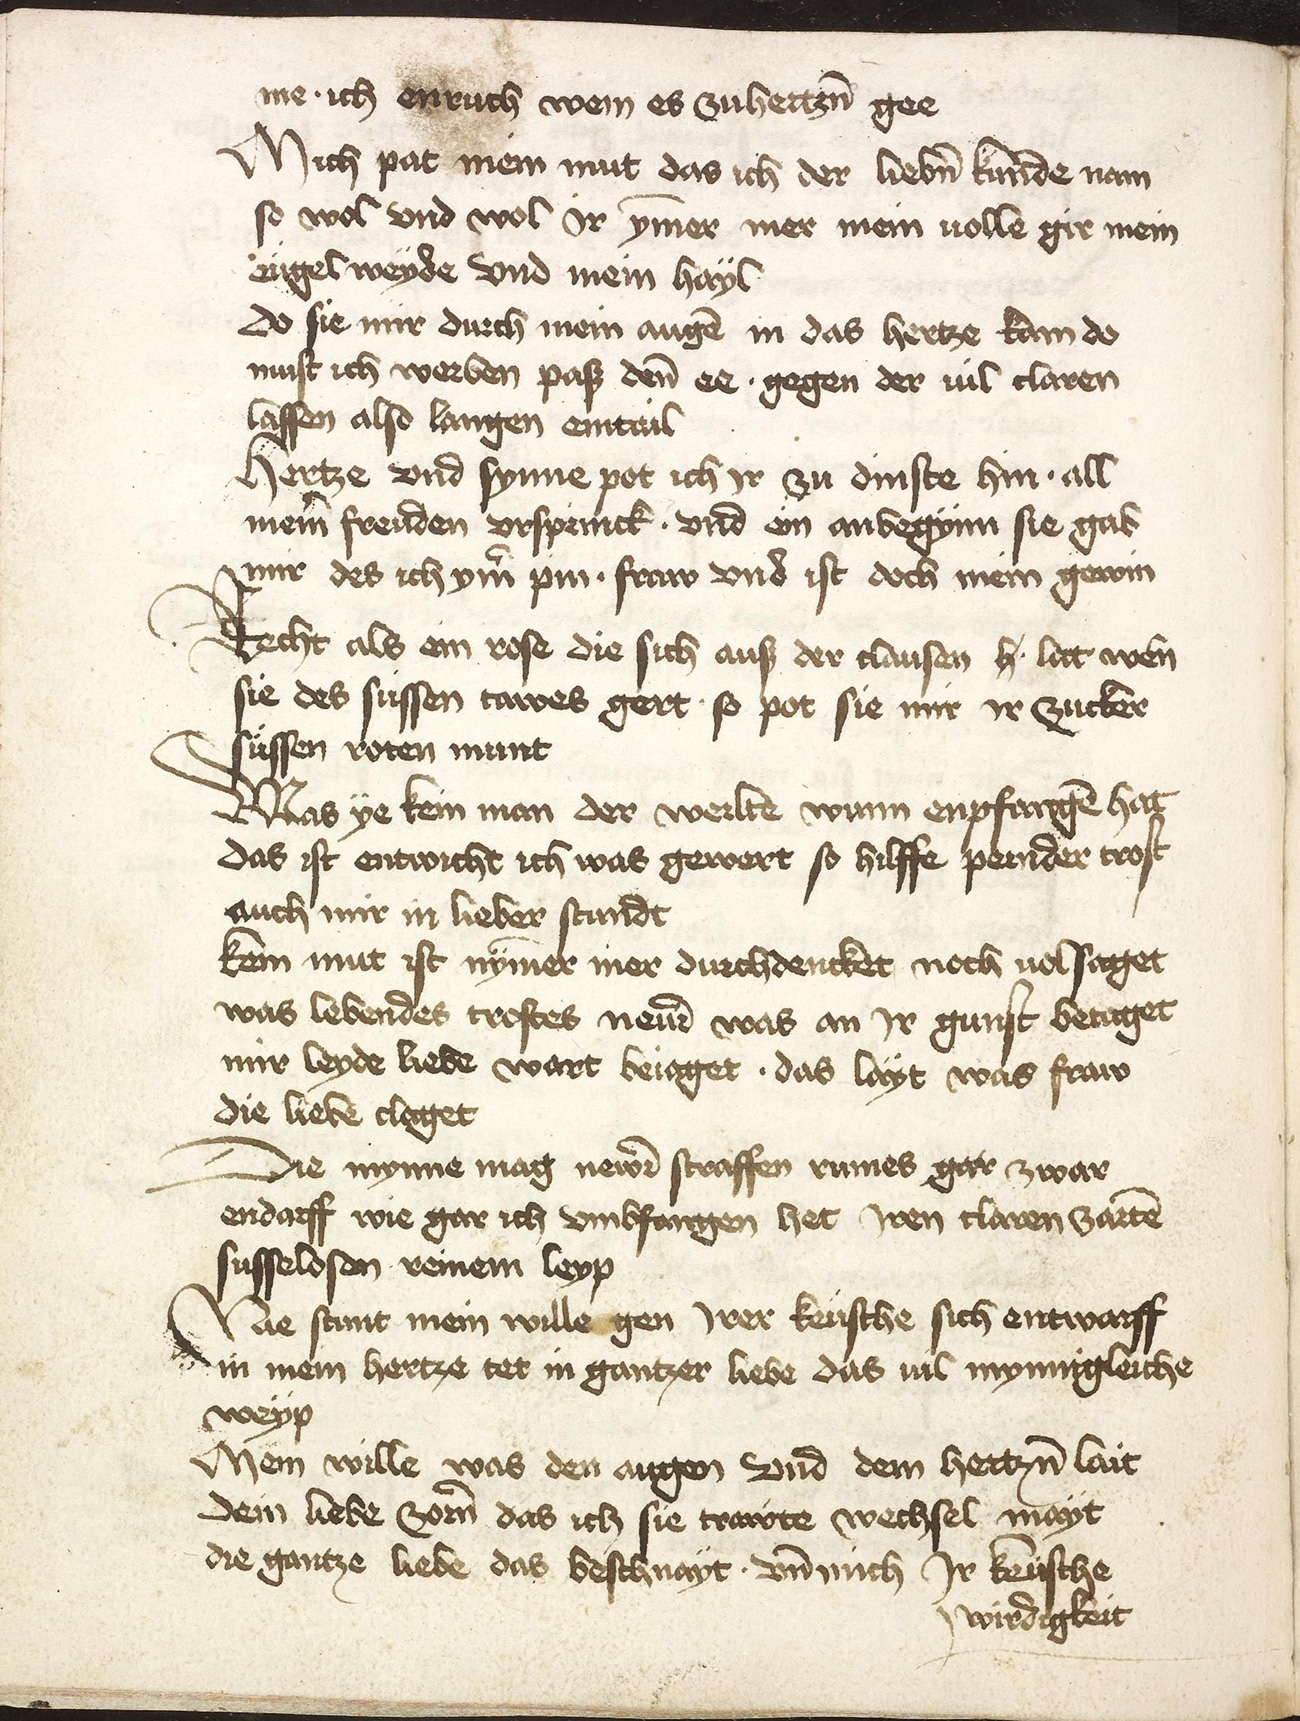 me · ich enruch wem es zuhertzn̄ gee
Mich pat mein mut das ich der liebn̄ kunde nam
so wol vnd wol Ir ym̄er mer mein volle gir mein
eugel weyde vnd mein hayl
do sie mir durch mein augē in das hertze kam do
must ich werben paß den̄ ee · gegen der vil claren
lassen also langen emtail
Hertze vnd synne pot ich Ir zu dinste hin · all
mein̄ freuden vrsprinck · vnd ein anbegynn sie gab
mir des ich ym̄ pin · fraw vnd ist doch mein gewin
Recht als ein rose die sich auß der clausen h · lat wen
sie des süssen tawes gert · so pot sie mir ir zucker
süssen roten munt
Was ye kein man der werlte wunn enpfangē hat
das ist entwicht ich was gewert so hilffe pernder trost
auch mir in lieber stundt
kein mut ist nym̄er mer durchdencket noch volsaget
was lebendes trostes neur̄ was an Ir gunst betaget
mir leyde liebe wart beiaget · das layt was fraw
die liebe claget
Die mynne mag newr̄ straffen rumes gar zwar
endarff wie gar ich vmbfangen het Iren claren zartē
susselosen reinem leyp
Nie stunt mein wille gen Irer keusche sich entwarff
in mein hertze tet in gantzer liebe das vil mynnigleiche
weyp
Mein wille was den augen vnd dem hertzn̄ lait
dein liebe zorn̄ das ich sie trawte wechsel mayt
die gantze liebe das beschnayt · vn̄ mich Ir keusche
wirdigkeit